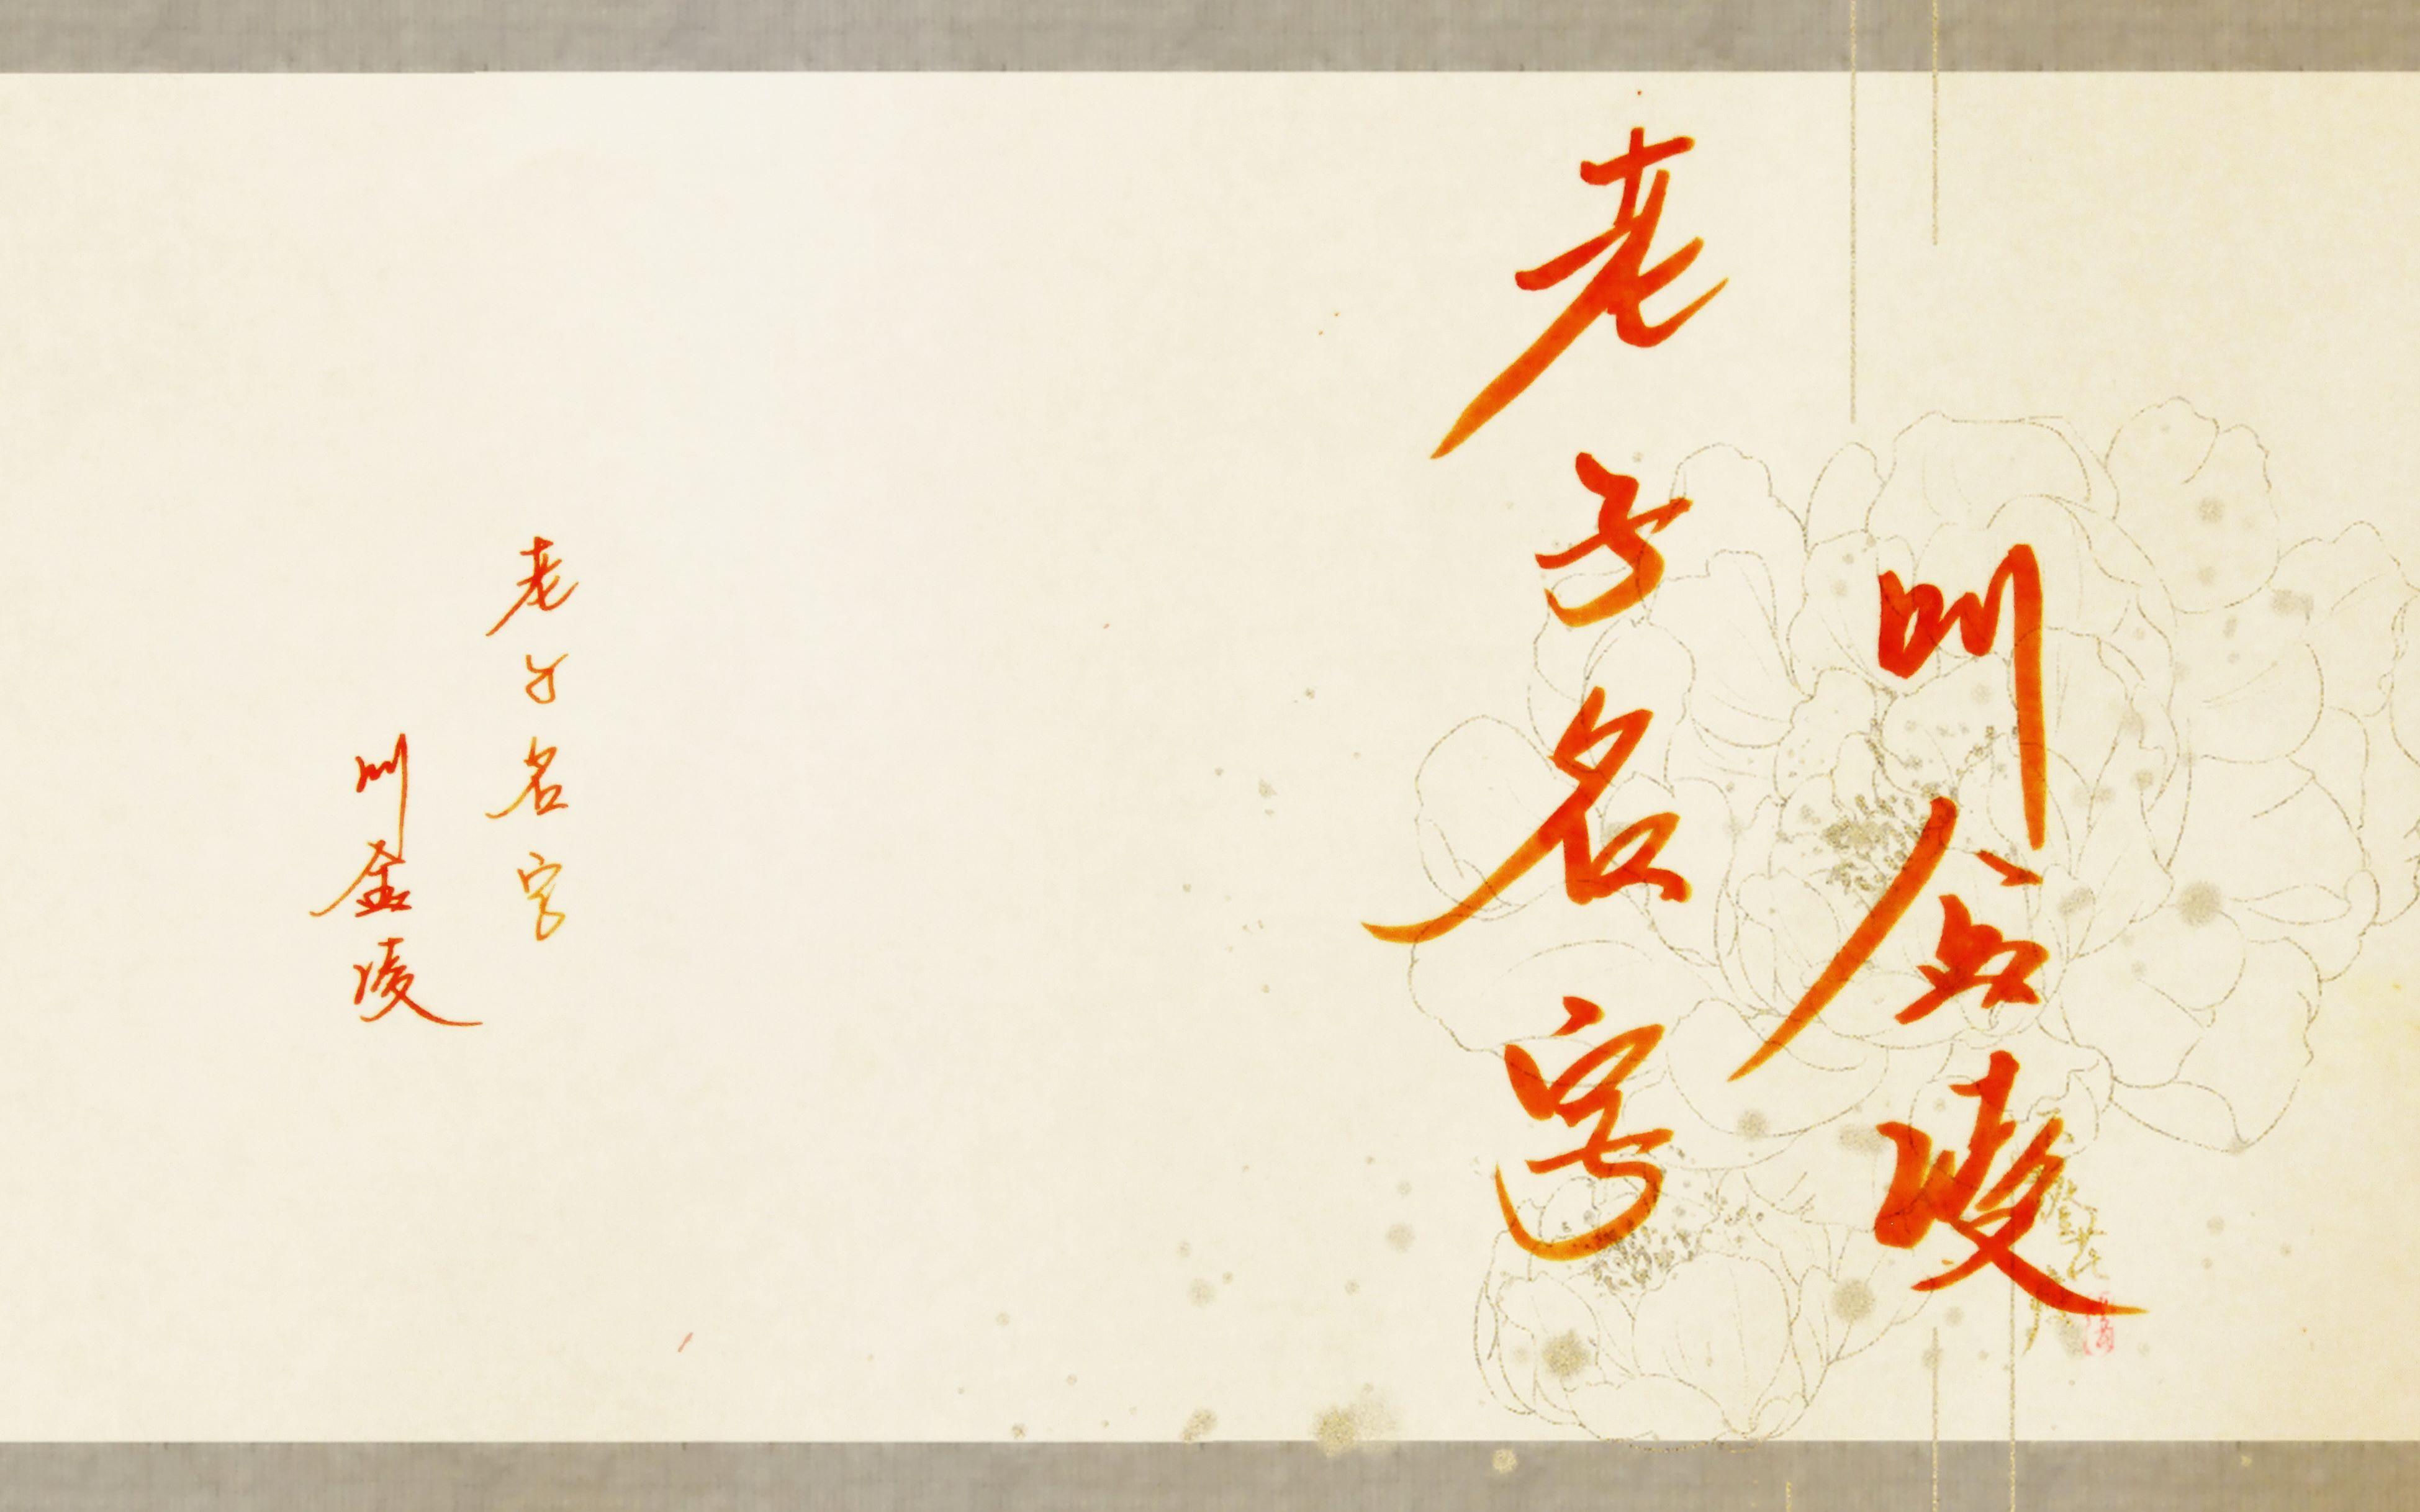 老子名字
叫金凌
老子名字
叫金凌